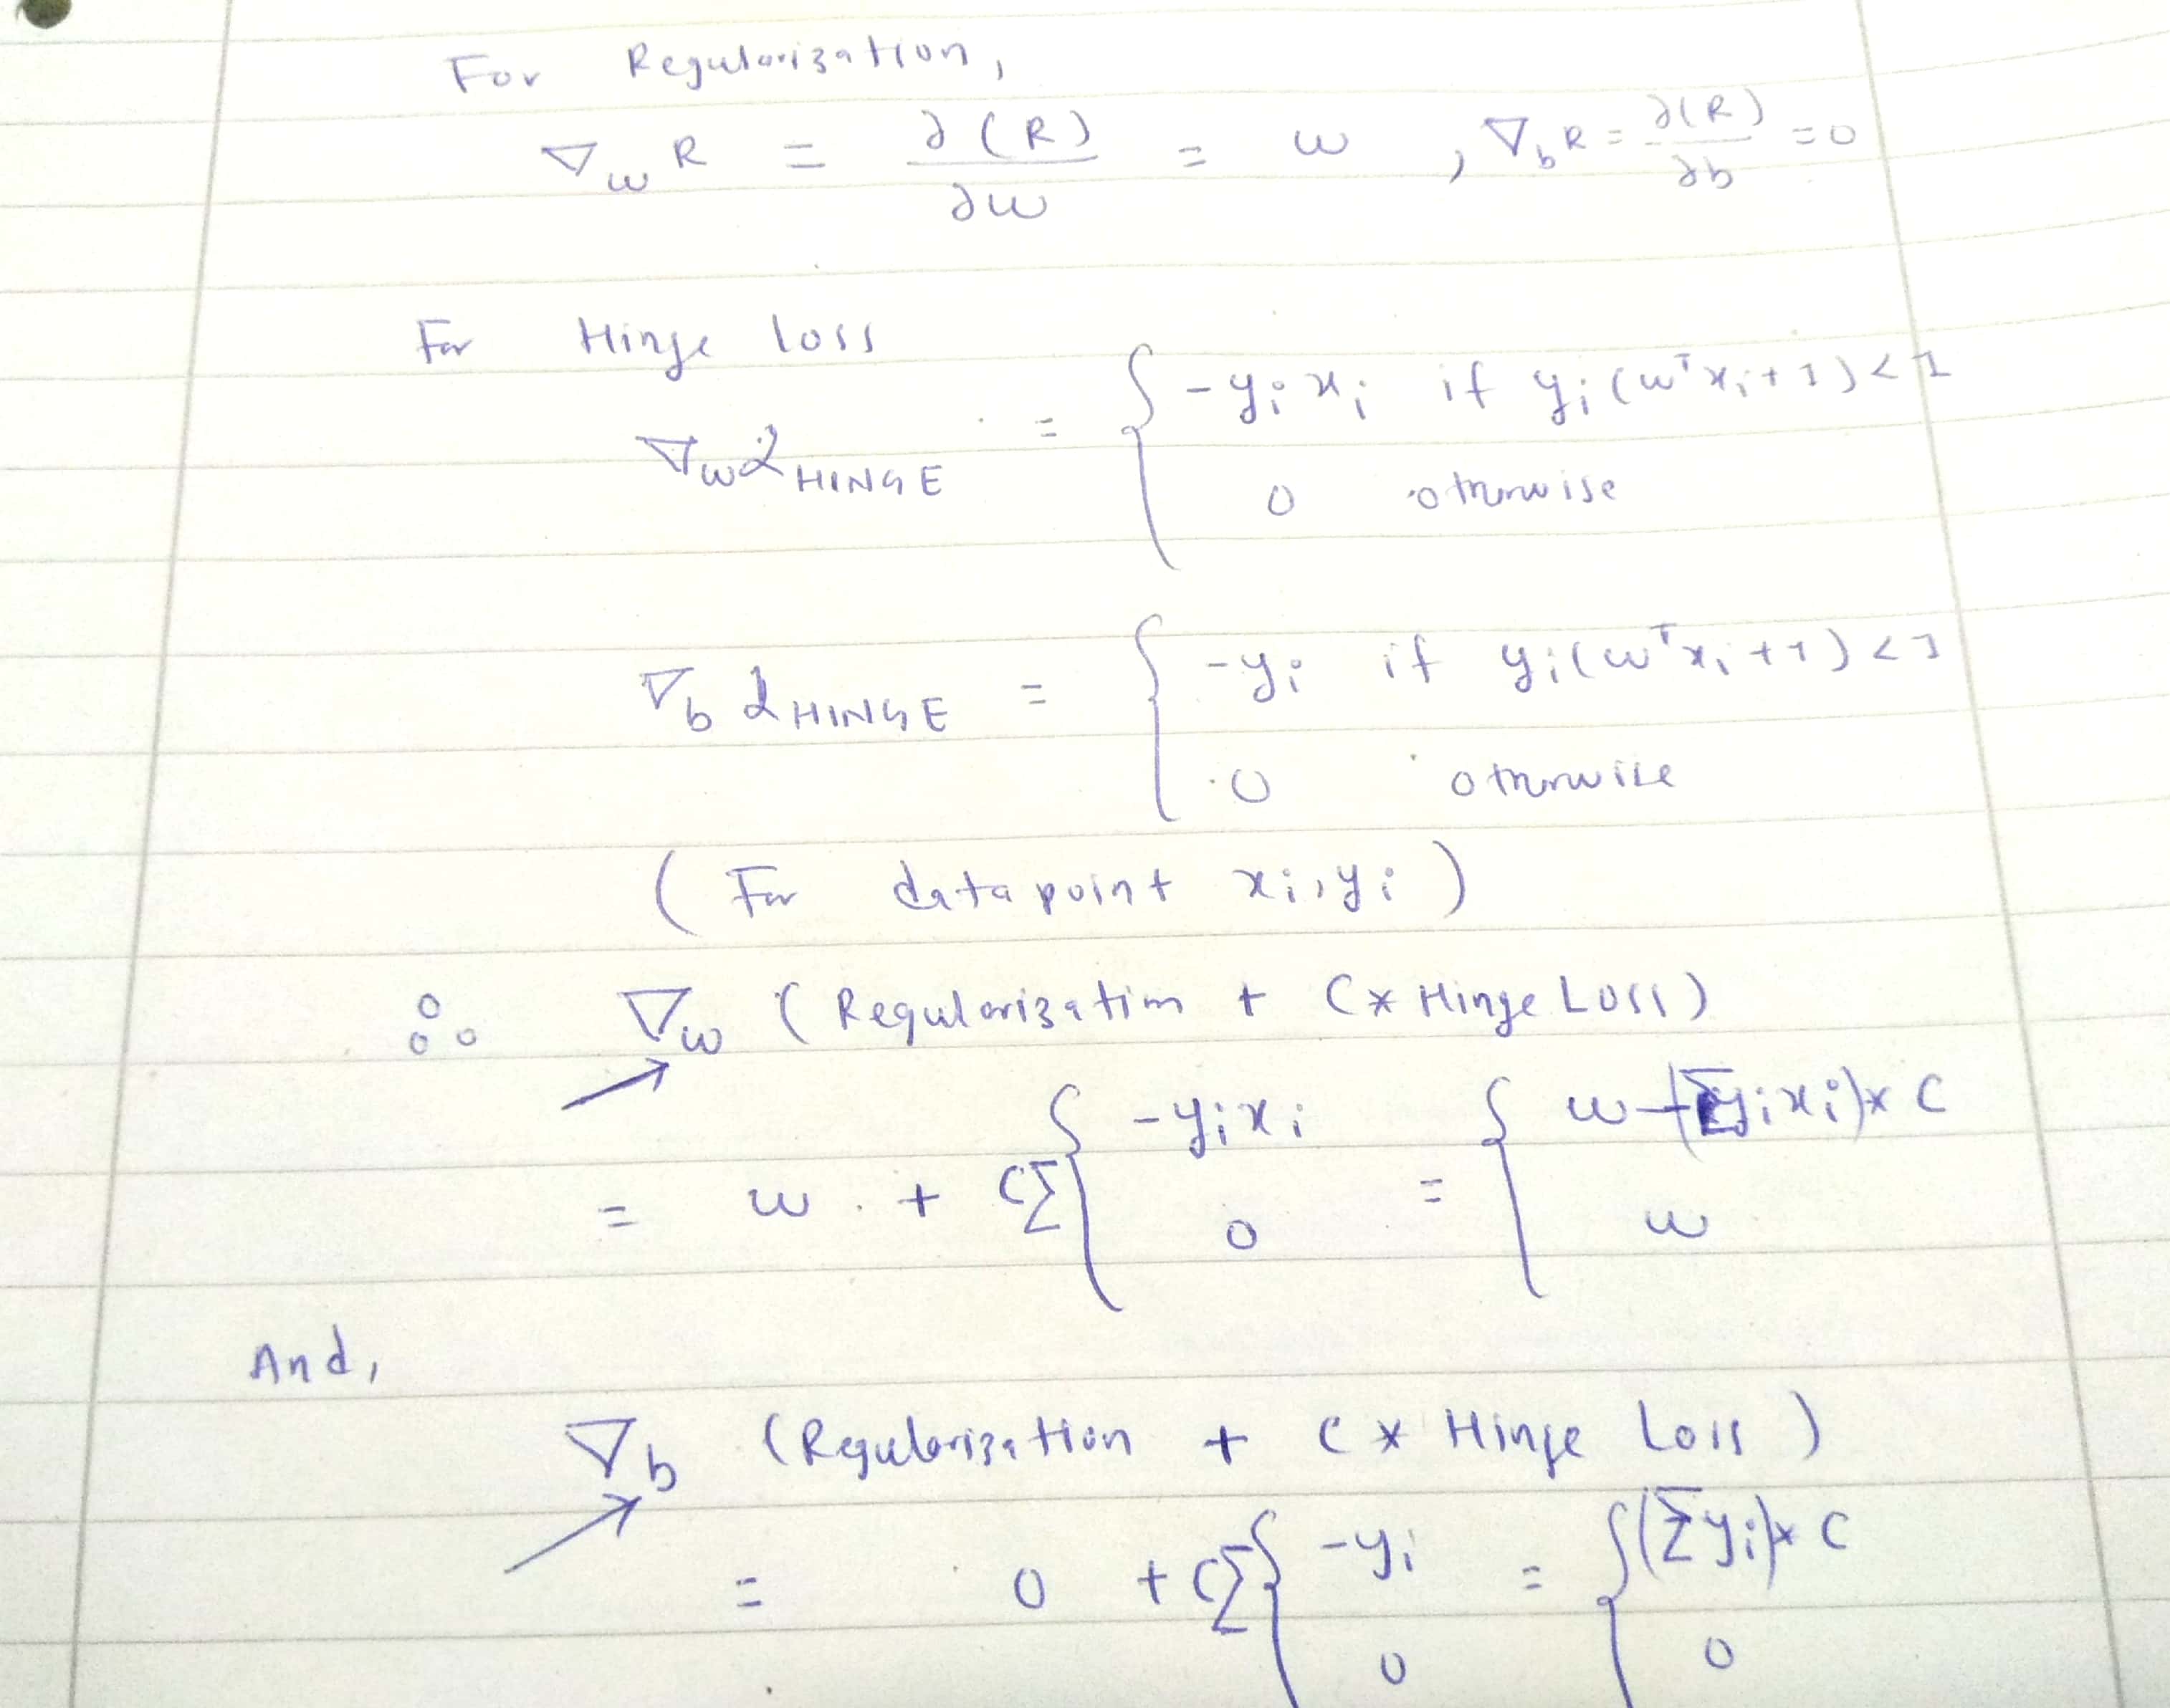 For Regularization,
∇_w R = ∂(R)/∂w = w , ∇_b R = ∂(R)/∂b = 0
For Hinge loss
∇_w ℒ_HINGE = { -y_i x_i if y_i(w^T x_i + 1) < 1
0 otherwise
∇_b ℒ_HINGE = { -y_i if y_i(w^T x_i + 1) < 1
0 otherwise
(For datapoint x_i, y_i)
∴ ∇_w (Regularization + C * Hinge Loss)
= w + C Σ { -y_i x_i = { w - (Σ y_i x_i) * C
0 w
And,
∇_b (Regularization + C * Hinge Loss)
= 0 + C Σ { -y_i = { (Σ y_i) * C
0 0